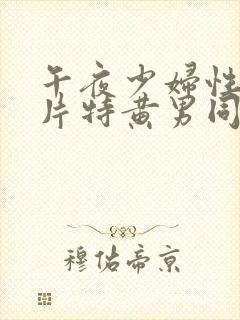 午夜少婦性
片特黄男同
穆佑帝京